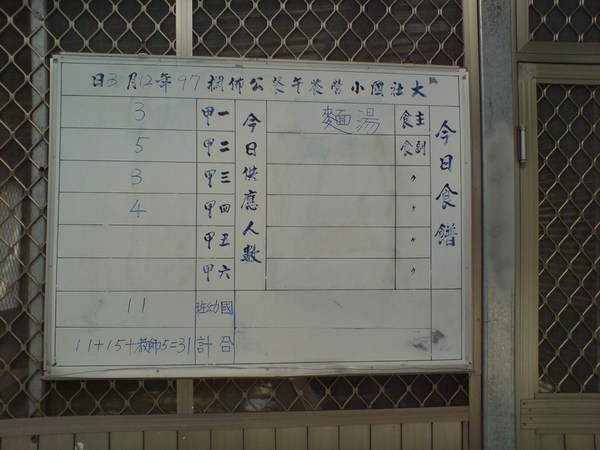 大社國小營養午餐公佈欄 97年12月3日
今日食譜
主食 湯麵
副食
〃
〃
〃
〃
今日供應人數
一甲 3
二甲 5
三甲 3
四甲 4
五甲
六甲
國幼班 11
合計 11+15+教師5=31